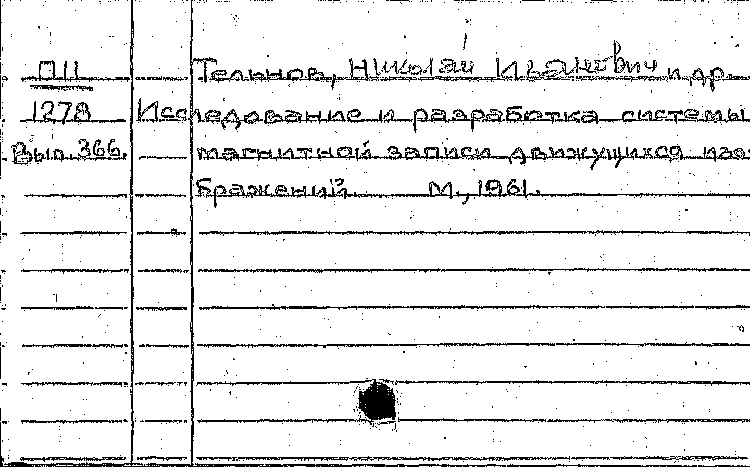 П11 Тельнов, Николай Иванович и др
1278 Исследование и разработка системы
Вып.366. магнитной записи движущихся изо-
бражений. М., 1961.